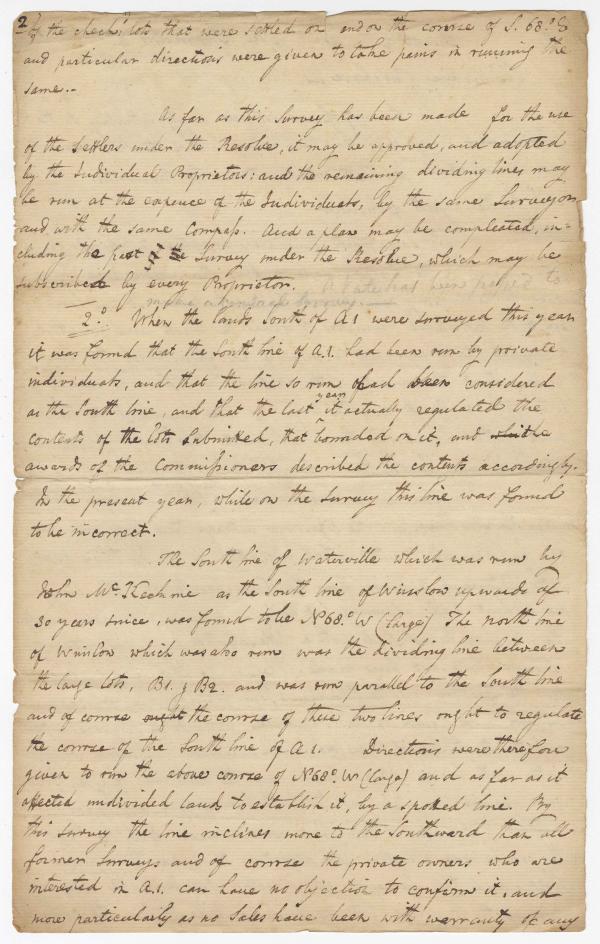 2 of the check'd lots that were settled on and on the course of S. 68.° E
and particular directions were given to take pains in running the
same.-
As far as this Survey has been made for the use
of the Settlers under the Resolve, it may be approved, and adopted
by the Individual Proprietors: and the remaining dividing lines may
be run at the expence of the Individuals, by the same Surveyors
and with the same Compass. And a plan may be compleated, in-
cluding the past of the Survey under the Resolve, which may be
subscribed by every Proprietor.
2.° When the lands South of A1 were surveyed this year
it was found that the South line of A.1. had been run by private
individuals, and that the line so run had been considered
as the South line, and that the last year it actually regulated the
contents of the lots submitted, that bounded on it, and the
awards of the Commissioners described the contents accordingly.
In the present year, while on the Survey this line was found
to be incorrect.
The South line of Waterville which was run by
John McKechnie as the South line of Winslow upwards of
30 years since, was found to be N68.° W (large) The north line
of Winslow which was also run was the dividing line between
the large lots, B1. & B2. and was run parallel to the South line
and of course ought the course of these two lines ought to regulate
the course of the South line of A1. Directions were therefore
given to run the above course of N68.° W (large) and as far as it
affected undivided lands to establish it, by a spotted line. By
this survey the line inclines more to the Southward than all
former Surveys and of course the private owners who are
interested in A.1. can have no objection to confirm it, and
more particularly as no Sales have been with warranty of any